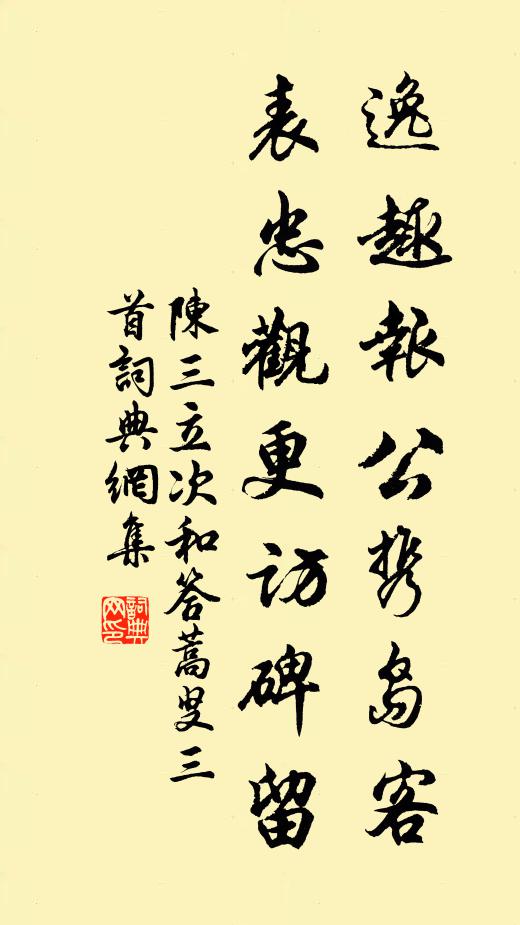 逸趣報公携島客
表忠觀更訪碑留
陳三立次和答蒿叟三
首詞典網集
詞典网印